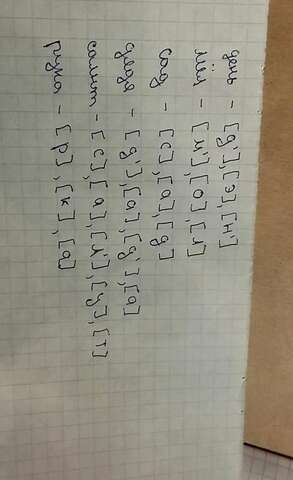 день - [д'],[э],[н']
мёл - [м'],[о],[л]
сад - [с],[а],[д]
дядя - [д'],[а],[д'],[а]
салют - [с],[а],[л'],[у],[т]
рука - [р],[к],[а]